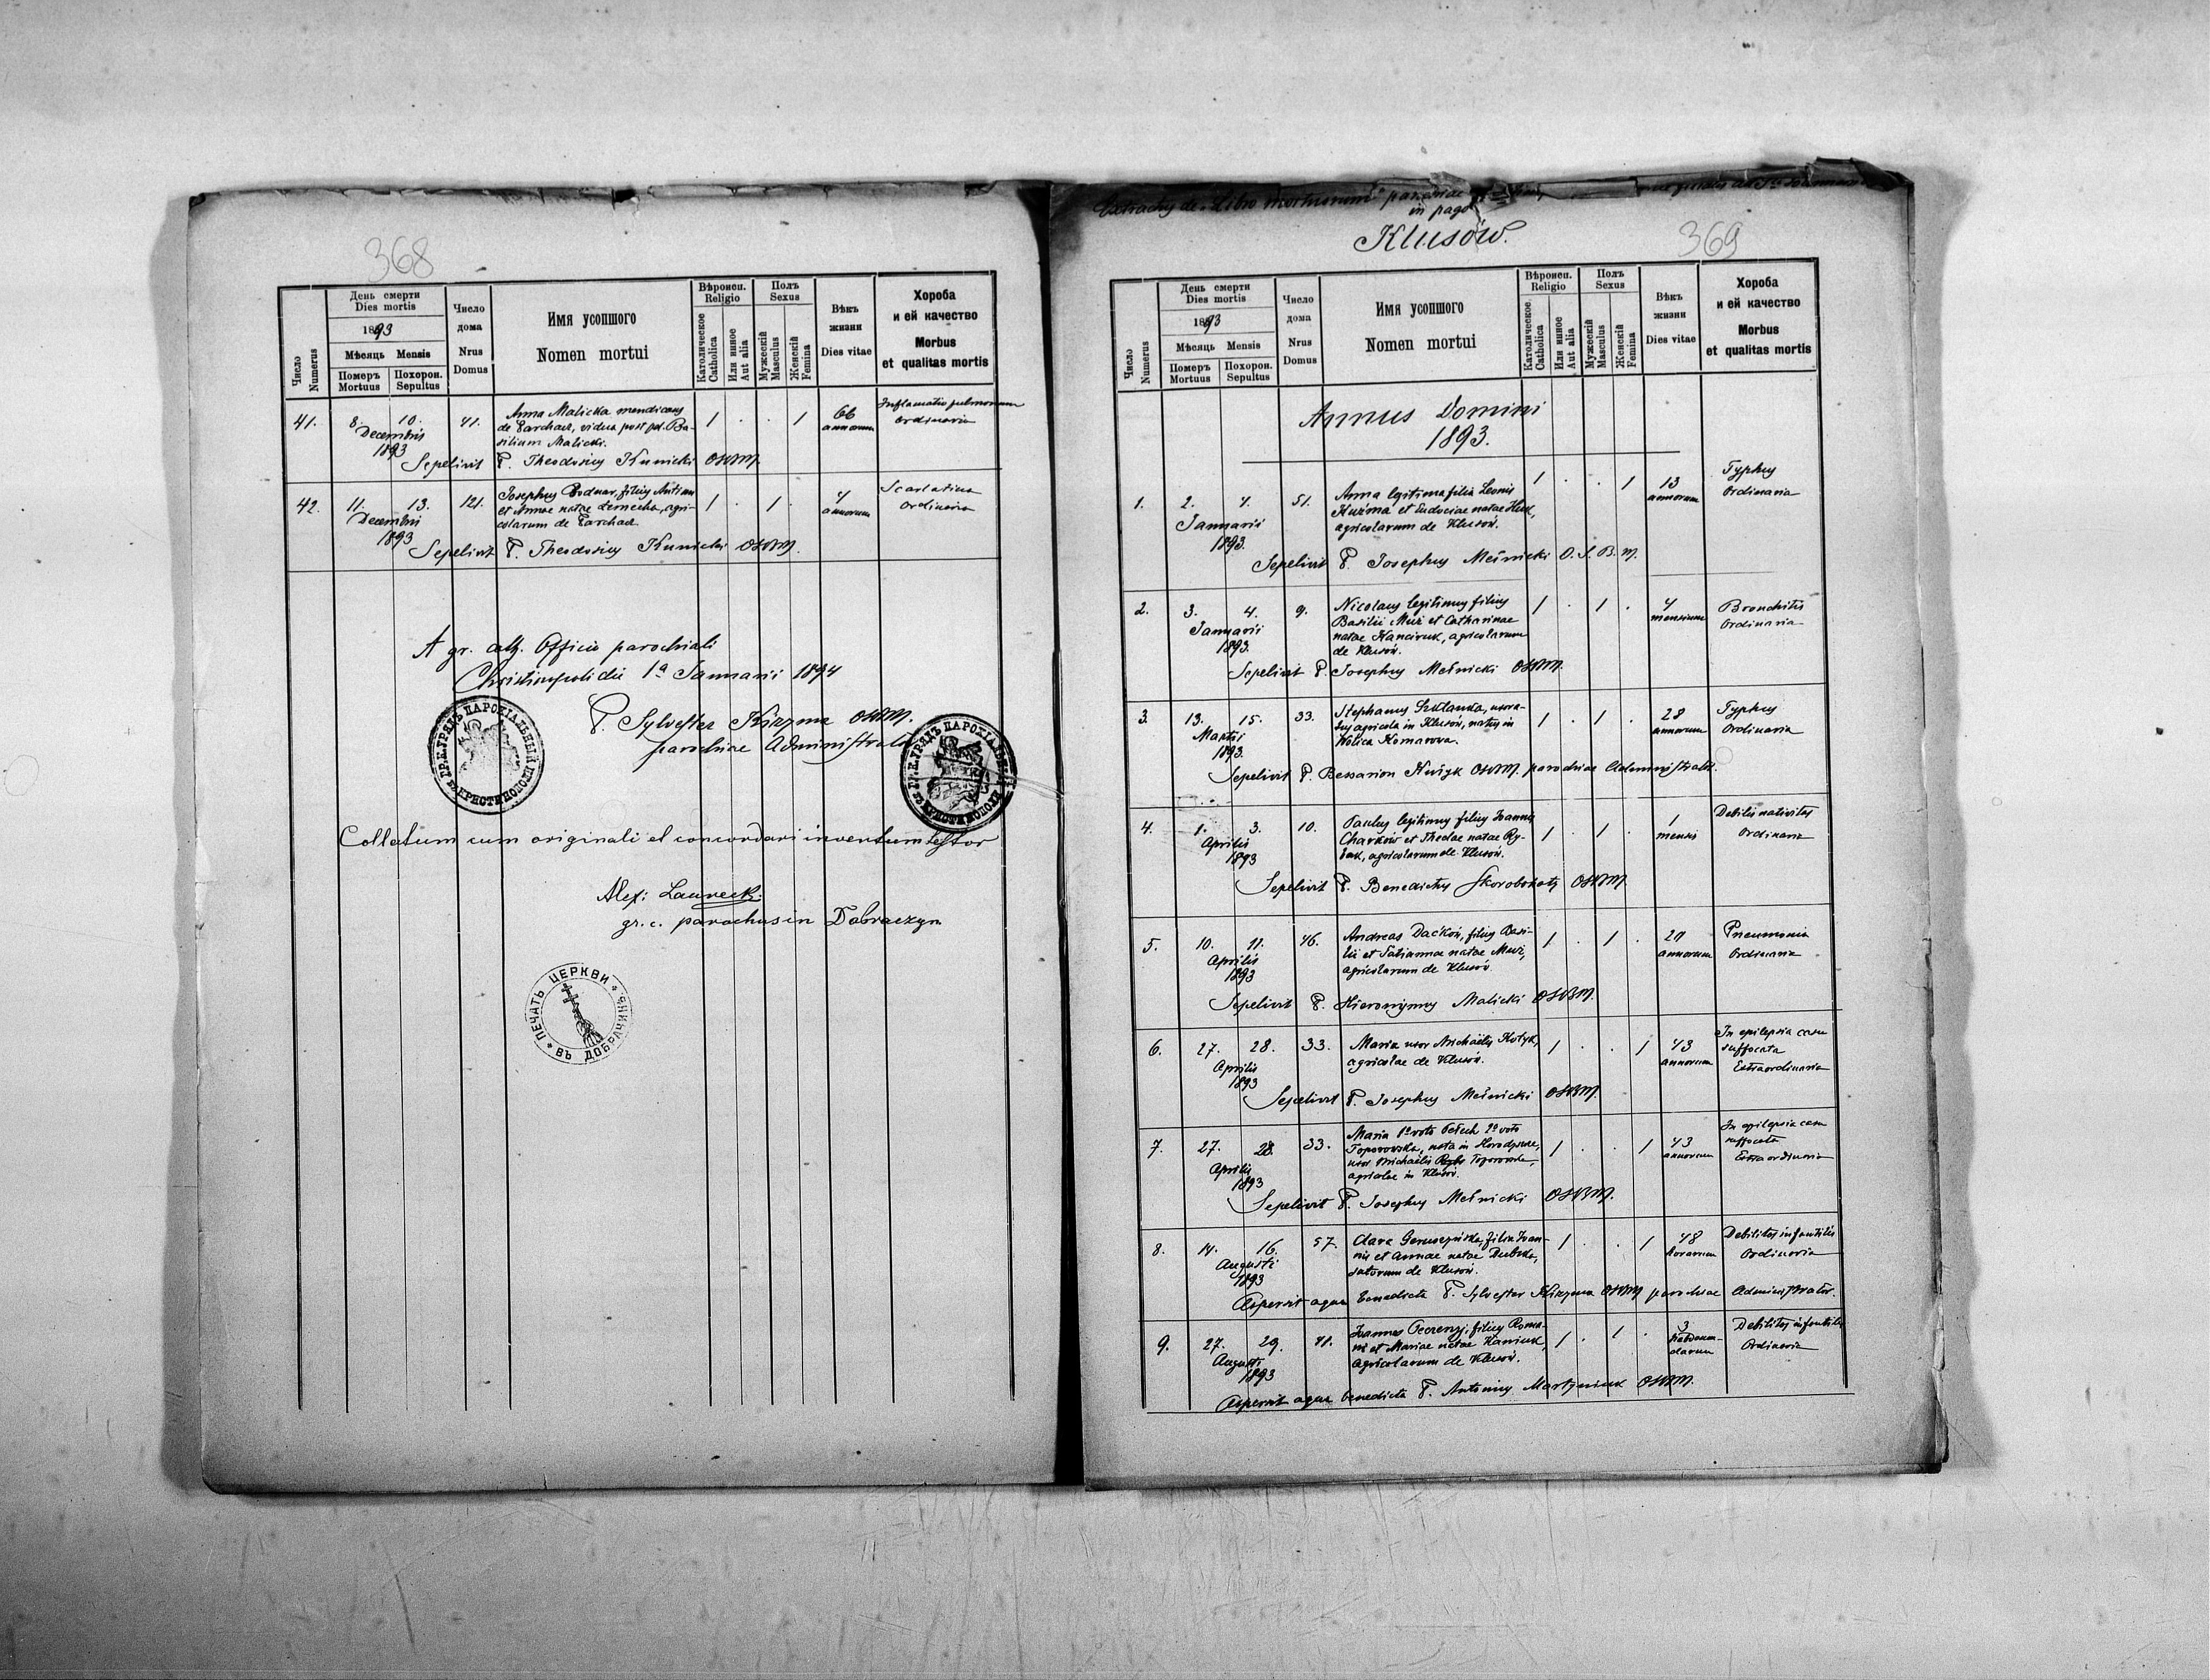 368
День смерти
Dies mortis
1893
Мѣсяць Mensis
Померъ Mortuus
Похорон. Sepultus
Число Numerus
Число дома
Nrus Domus
Имя усопшого
Nomen mortui
Вѣроисп.
Religio
Католическое Catholica
Или инное Aut alia
Полъ
Sexus
Мужескій Masculus
Женскій Femina
Вѣкъ жизни
Dies vitae
Хороба
и ей качество
Morbus
et qualitas mortis
41. 8. 10. 41. Anna Malicka mendicans 1 . . 1 66 Inflamatio pulmonum
Decembris de Parchacz, vidua post pd. Ba- annorum ordinaria
1893 silium Malicki.
Sepelivit P. Theodosius Kunicki OSBM.
42. 11. 13. 121. Josephus Bodnar, filius Antonii 1 . 1 . 4 Scarlatina
Decembris et Annae natae agri- annorum ordinaria
1893 colarum de Parchacz
Sepelivit P. Theodosius Kunicki OSBM.
A gr. cath. Officio parochiali
Christinopoli die 1a Januarii 1894
P. Sylvester Kizyma OSBM.
parochiae Administrator
ГР.К.УРЯДЪ ПАРОХІАЛЬНЫЙ ВЪ КРИСТИНОПОЛИ
ГР.К.УРЯДЪ ПАРОХІАЛЬНЫЙ ВЪ КРИСТИНОПОЛИ
Collatum cum originali et concordari inventum testor
Alex: Laureck:
gr. c. parochus in Dobraczyn
ПЕЧАТЬ ЦЕРКВИ ВЪ ДОБРАЧИНѢ
Extractus de "Libro mortuorum" parochiae
in pago
Klusów.
369
День смерти
Dies mortis
1893
Мѣсяць Mensis
Померъ Mortuus
Похорон. Sepultus
Число Numerus
Число дома
Nrus Domus
Имя усопшого
Nomen mortui
Вѣроисп.
Religio
Католическое Catholica
Или инное Aut alia
Полъ
Sexus
Мужескій Masculus
Женскій Femina
Вѣкъ жизни
Dies vitae
Хороба
и ей качество
Morbus
et qualitas mortis
Annus Domini
1893.
1. 2. 4. 51. Anna legitima filia Leonis 1 . . 1 13 Typhus
Januarii Kuźma et Eudociae natae annorum Ordinaria
1893. agricolarum de Klusów.
Sepelivit P. Josephus Melnicki O. S. B. M.
2. 3. 4. 9. Nicolaus legitimus filius 1 . 1 . 4 Bronchitis
Januarii Basilii Muż et Catharinae mensium Ordinaria
1893. natae Hanciruk, agricolarum
de Klusów.
Sepelivit P. Josephus Melnicki OSBM.
3. 13. 15. 33. Stephanus Szklanka, uxora- 1 . 1 . 28 Typhus
Martii tus agricola in Klusów, natus in annorum Ordinaria
1893. Wolica Komarowa.
Sepelivit P. Bessarion OSBM. parochiae Administrator.
4. 1. 3. 10. Paulus legitimus filius Joannis 1 . 1 . 1 Debilis nativitas
Aprilis Charków et Theclae natae Ry- mensis Ordinaria
1893 bak, agricolarum de Klusów.
Sepelivit P. Benedictus Skorobohaty OSBM.
5. 10. 11. 46. Andreas Daćków, filius Basi- 1 . 1 . 21 Pneumonia
Aprilis lii et Tatiannae natae Muż, annorum Ordinaria
1893 agricolarum de Klusów
Sepelivit P. Hieronymus Malicki OSBM.
6. 27. 28. 33. Maria uxor Michaëlis 1 . . 1 43 In epilepsia casu
Aprilis agricolae de Klusów. annorum suffocata
1893 Extraordinaria
Sepelivit P. Josephus Melnicki OSBM.
7. 27. 28. 33. Maria 1º voto 2º voto 1 . . 1 43 In epilepsia casu
Aprilis Toporowska, nata in annorum suffocata
1893 uxor Michaëlis Toporowski, Extraordinaria
agricolae in Klusów.
Sepelivit P. Josephus Melnicki OSBM.
8. 14. 16. 57. Clara filia Joan- 1 . . 1 48 Debilitas infantilis
Augusti nis et Annae natae Dubska, horarum Ordinaria
1893 sutorum de Klusów.
Aspersit aqua benedicta P. Sylvester Kizyma OSBM parochiae Administrator.
9. 27. 29. 41. Joannes filius Roma- 1 . 1 . 3 Debilitas infantilis
Augusti ni et Mariae natae Haniuk, hebdoma- Ordinaria
1893 agricolarum de Klusów. darum
Aspersit aqua benedicta P. Antonius Martyniuk OSBM.